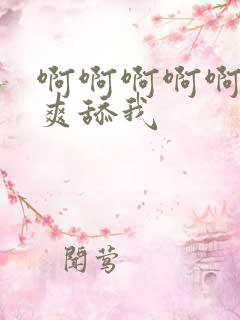 啊啊啊啊啊
爽舔我
闻莺